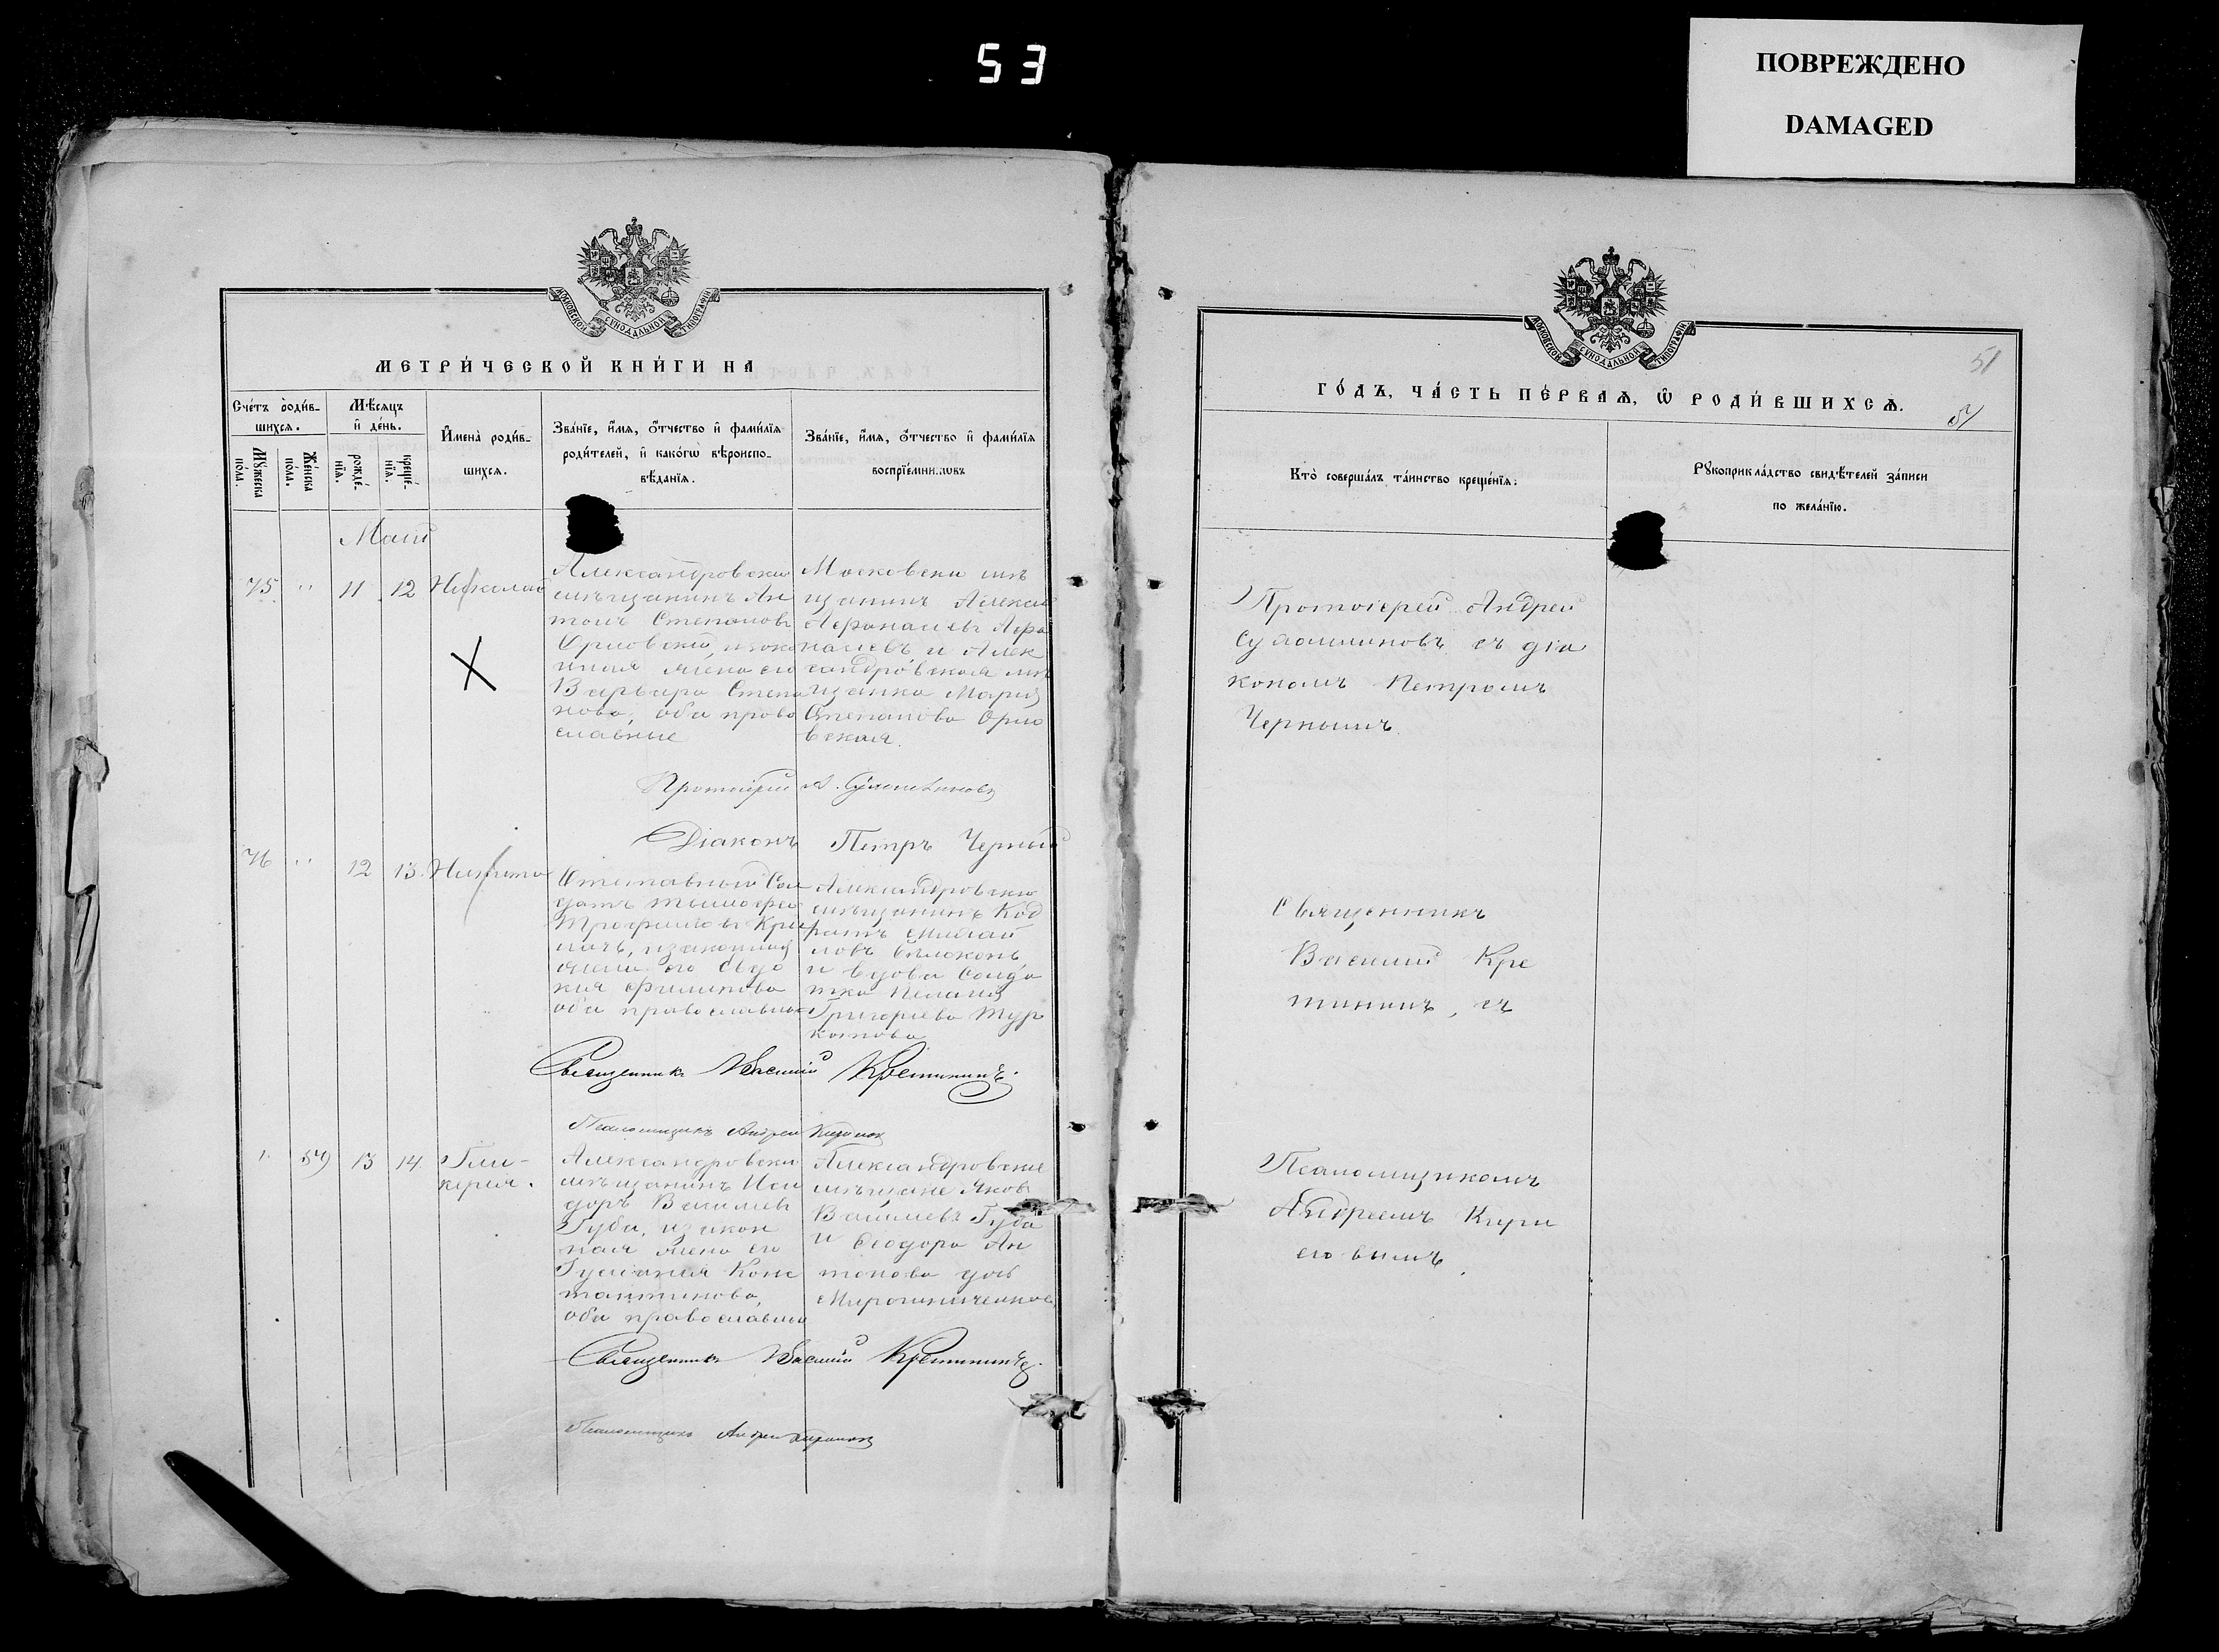 53
ПОВРЕЖДЕНО
DAMAGED
МОСКОВСКОЙ СУНОДАЛЬНОЙ ТИПОГРАФІИ
МЕТРИ́ЧЕСКОЙ КНИ́ГИ НА
Сче́тъ роди́в-
шихсѧ.
Мѣ́сяцъ
и҆ де́нь.
Му́жеска
по́ла.
Же́нска
по́ла.
рожде́-
нїѧ.
креще́-
нїѧ.
И҆мена̀ роди́в-
шихсѧ.
Зва́нїе, и҆́мѧ, ѻ҆́тчество и҆ фами́лїѧ
роди́телей, и҆ како́гѡ вѣроиспо-
вѣ́данїѧ.
Зва́нїе, и҆́мѧ, ѻ҆́тчество и҆ фами́лїѧ
воспрїе́мниковъ
Май
75 " 11 12 Николай
Александровски
мѣщанинъ Ан
тонъ Степановъ
Орловскій, и зако
нная жена его
Варвара Степа
нова, оба право
славные
Московски мѣ
щанинъ Алексѣй
Афанасіевъ Афа
насіевъ и Алек
сандровская мѣ
щанка Марія
Степанова Орло
вская.
Протоіерей А. Сулашинновъ
Діаконъ Петръ Черный
76 " 12 13 Никита
Отставный Сол
датъ Тимофей
Трофимовъ
и законная
жена его Евдо
кія Филипова
оба православные
Александровскій
мѣщанинъ Код
ратъ Михай
ловъ Бѣлоконь
и вдова Солда
тка Пелагія
Григорьева Тур
котова
Священникъ Василій Кретининъ.
Псаломщикъ Андрей
" 59 13 14. Гли-
керія.
Александровски
мѣщанинъ Иси
доръ Василіевъ
Губа, и закон
ная жена его
Іуліанія Конс
тантинова,
оба православны
Александровскіе
мѣщане Яковъ
Василіевъ Губа
и Ѳеодора Ан
тонова дочь
Мирошниченкова
Священникъ Василій Кретининъ.
Псаломщикъ Андрей
МОСКОВСКОЙ СУНОДАЛЬНОЙ ТИПОГРАФІИ
51
ГО́ДЪ, ЧА́СТЬ ПЕ́РВАѦ, Ѽ РОДИ́ВШИХСѦ.
Кто̀ соверша́лъ та́инство креще́нїѧ:
Рꙋкоприкла́дство свидѣ́телей за́писи
по жела́нїю.
Протоіерей Андрей
съ діа
кономъ Петромъ
Чернымъ
Священникъ
Василій Кре
тининъ, съ
Псаломщикомъ
Андреемъ